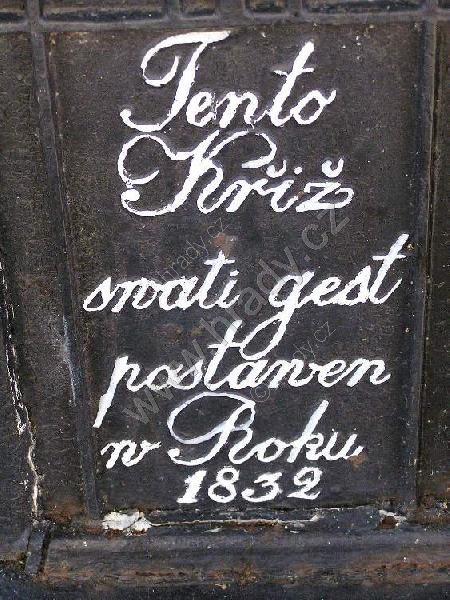 Tento
Křiž
swati gest
postawen
w Roku
1832
www.hrady.cz
© hrady.cz